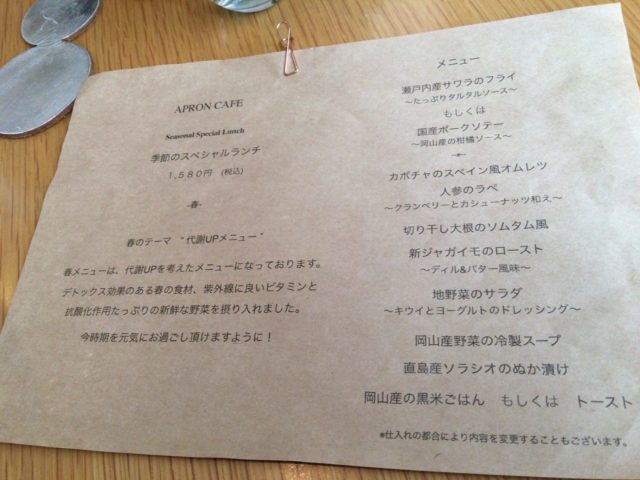 APRON CAFE
Seasonal Special Lunch
季節のスペシャルランチ
1,580円 (税込)
-春-
春のテーマ "代謝UPメニュー"
春メニューは、代謝UPを考えたメニューになっております。
デトックス効果のある春の食材、紫外線に良いビタミンと
抗酸化作用たっぷりの新鮮な野菜を摂り入れました。
今時期を元気にお過ごし頂けますように！
メニュー
瀬戸内産サワラのフライ
～たっぷりタルタルソース～
もしくは
国産ポークソテー
～岡山産の柑橘ソース～
カボチャのスペイン風オムレツ
人参のラペ
～クランベリーとカシューナッツ和え～
切り干し大根のソムタム風
新ジャガイモのロースト
～ディル&バター風味～
地野菜のサラダ
～キウイとヨーグルトのドレッシング～
岡山産野菜の冷製スープ
直島産ソラシオのぬか漬け
岡山産の黒米ごはん もしくは トースト
*仕入れの都合により内容を変更することもございます。